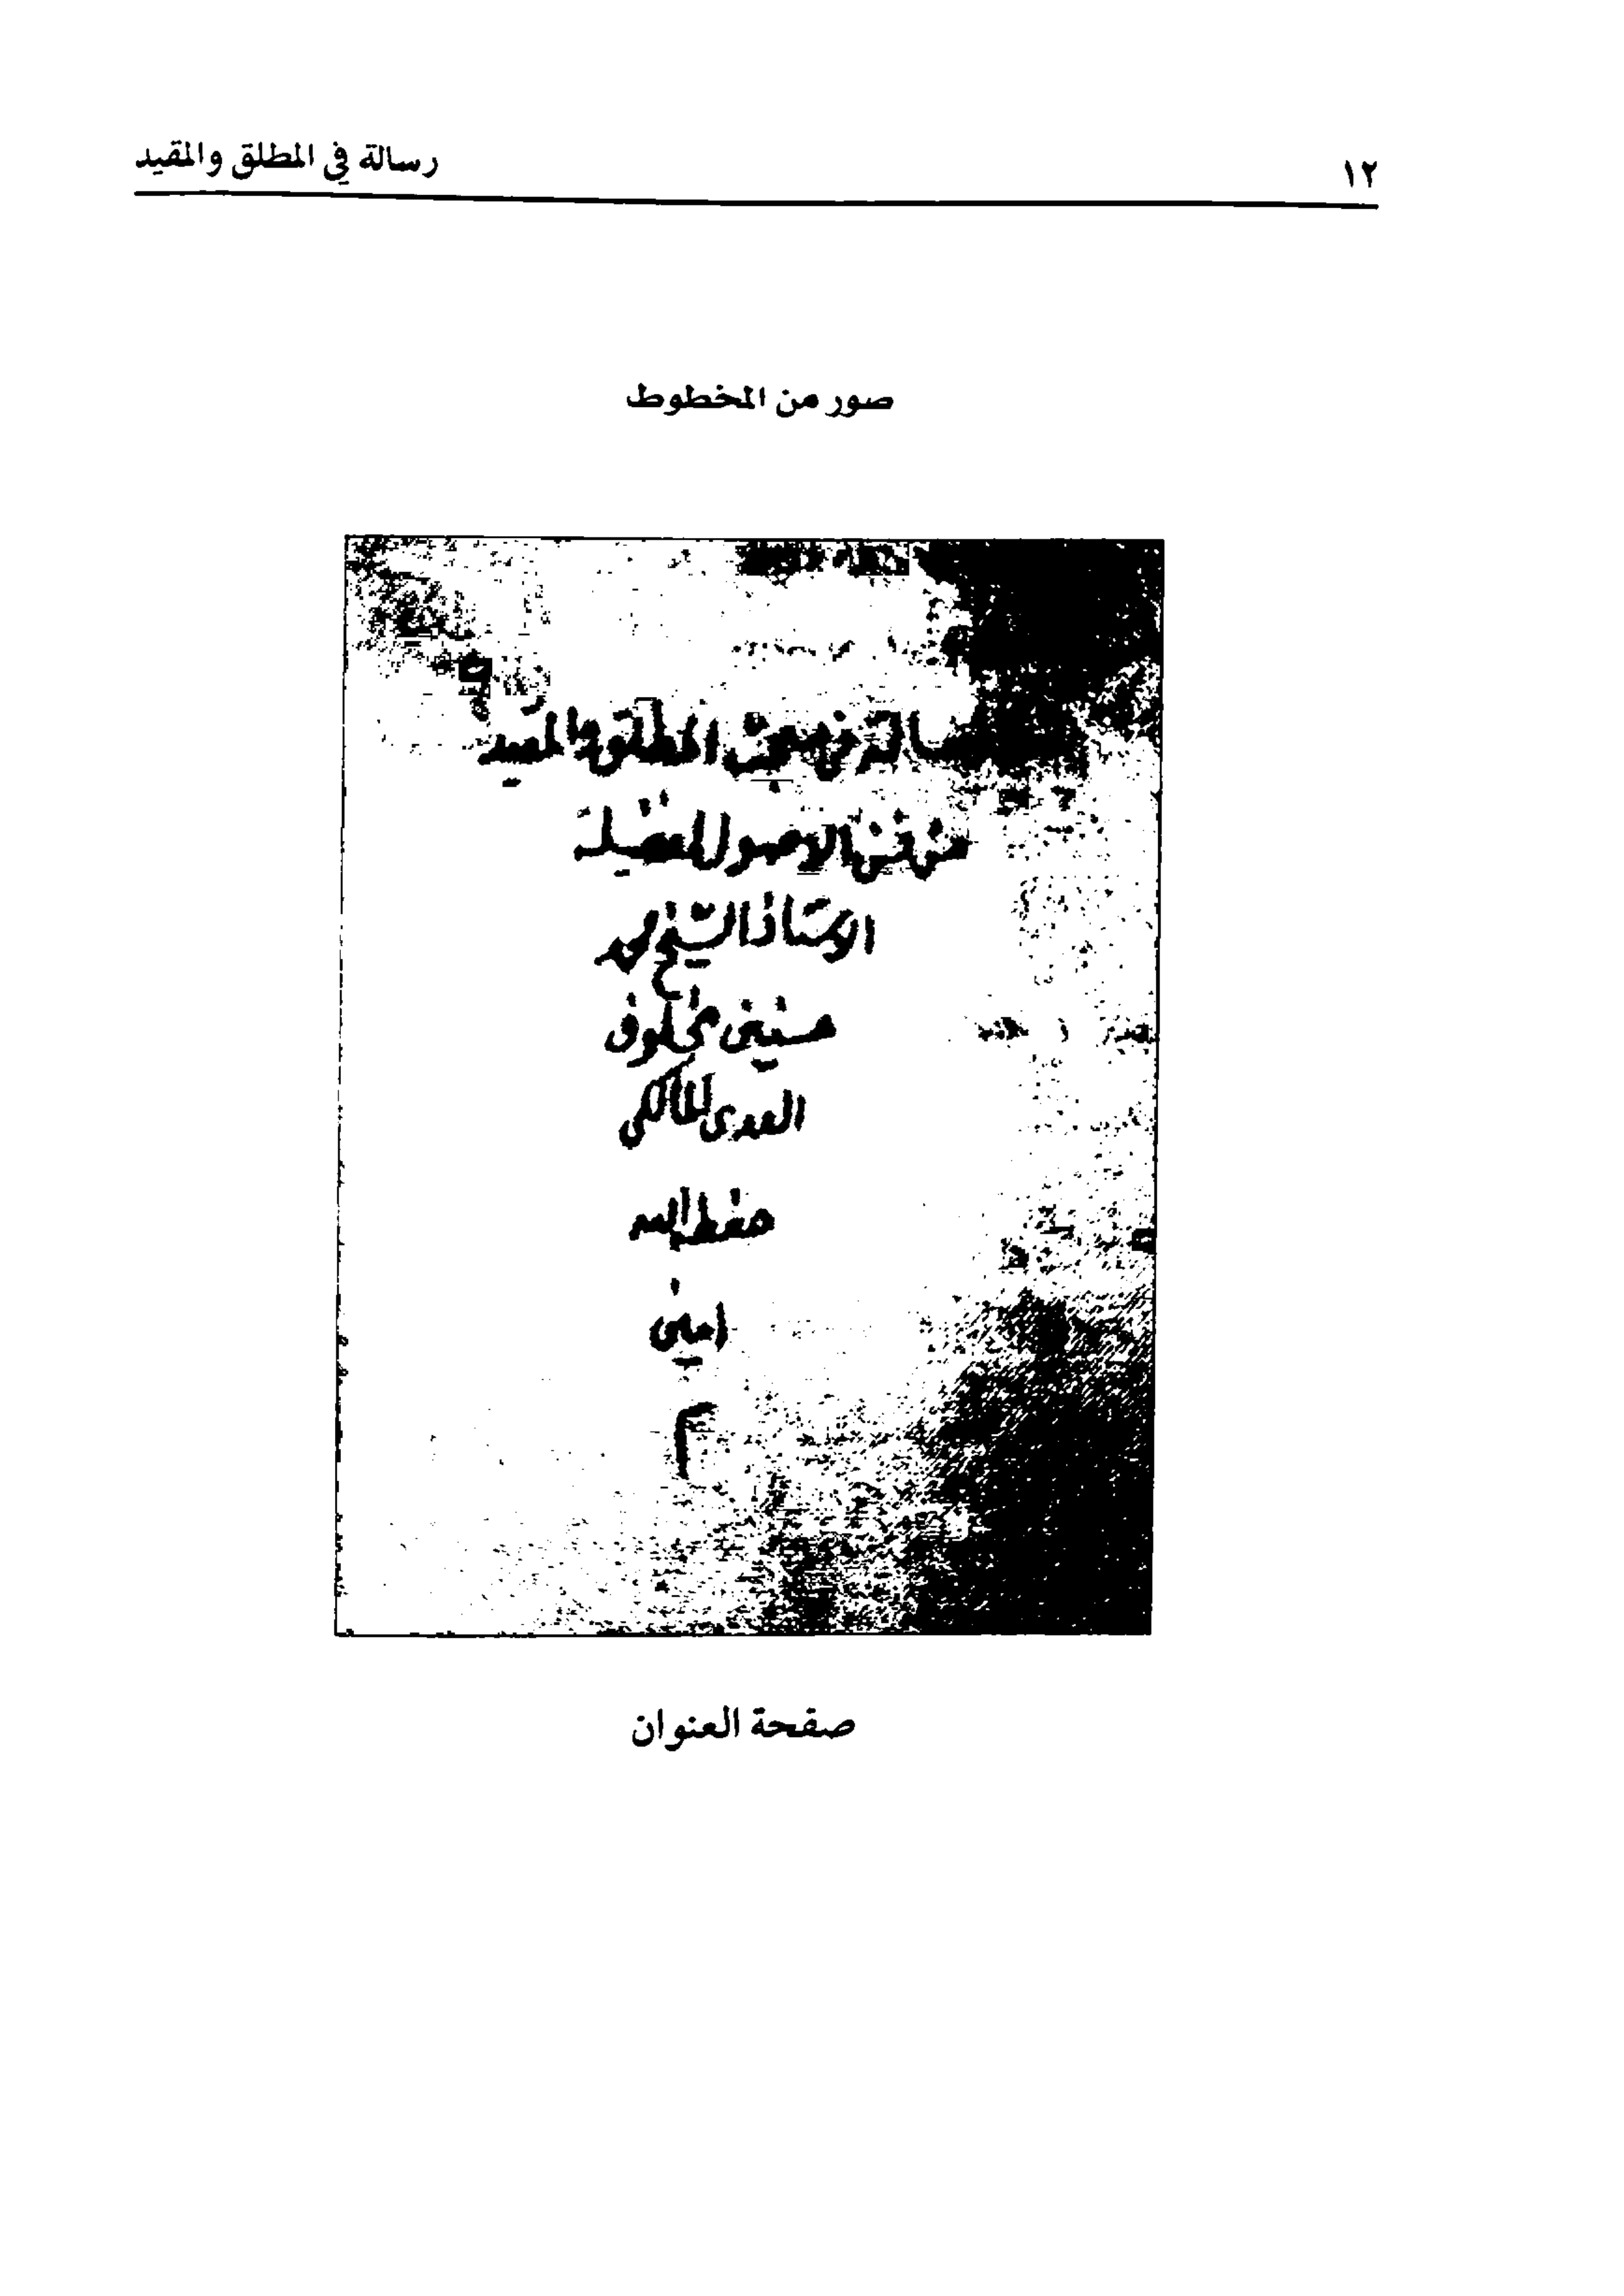 ١٢
رسالة في المطلق والمقيد
صور من المخطوط
رسالة في مبحث المطلق والمقيد
من فن الاصول لفضيلة
الاستاذ الشيخ محمد
حسنين مخلوف
العدوى المالكى
حفظه الله
امين
م
صفحة العنوان